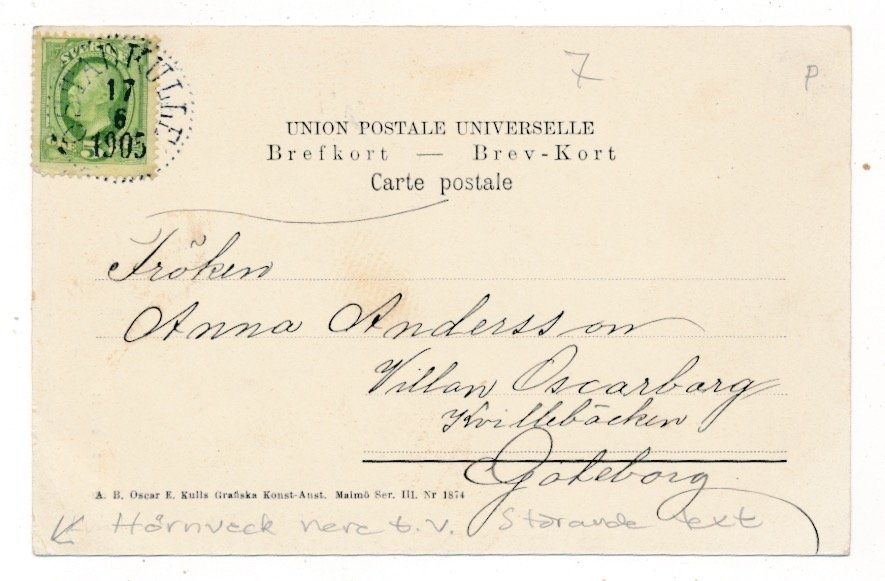 17
6
1905
7
P
UNION POSTALE UNIVERSELLE
Brefkort — Brev-Kort
Carte postale
Fröken
Anna Andersson
Villan Oscarborg
Kvillebäcken
Göteborg
A. B. Oscar E. Kulls Grafiska Konst-Anst. Malmö Ser. III. Nr 1874
Hörnveck nere t.v. Störande text